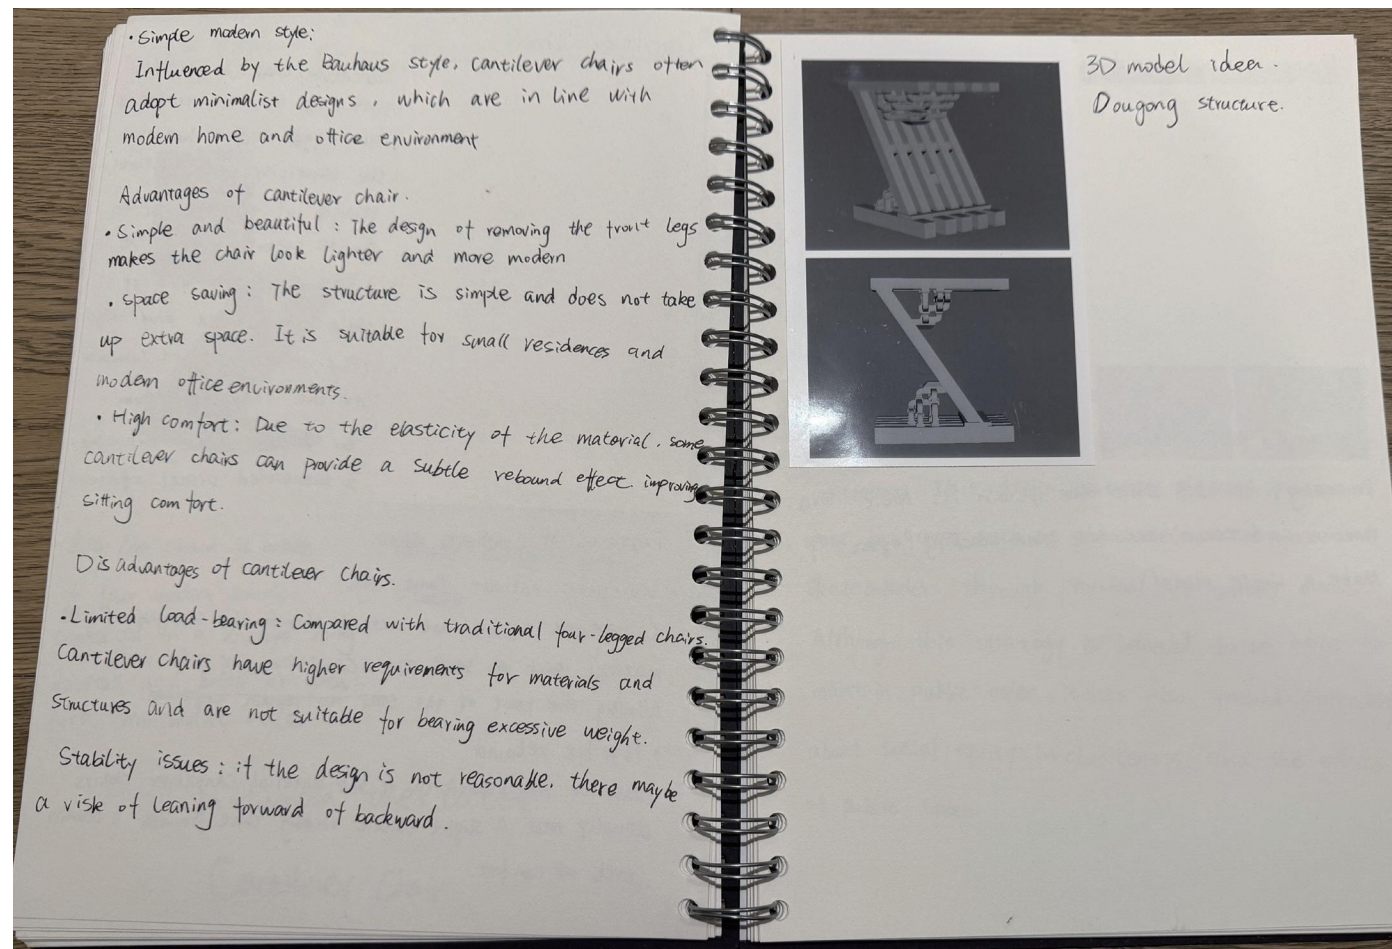 • Simple modern style:
Influenced by the Bauhaus style, cantilever chairs often
adopt minimalist designs, which are in line with
modern home and office environment
Advantages of cantilever chair.
• Simple and beautiful: The design of removing the front legs
makes the chair look lighter and more modern
• space saving: The structure is simple and does not take
up extra space. It is suitable for small residences and
modern office environments.
• High comfort: Due to the elasticity of the material, some
cantilever chairs can provide a subtle rebound effect improving
sitting comfort.
Disadvantages of cantilever chairs.
• Limited load-bearing: Compared with traditional four-legged chairs.
Cantilever chairs have higher requirements for materials and
structures and are not suitable for bearing excessive weight.
Stability issues: if the design is not reasonable, there maybe
a risk of leaning forward of backward.
3D model idea.
Dougong structure.